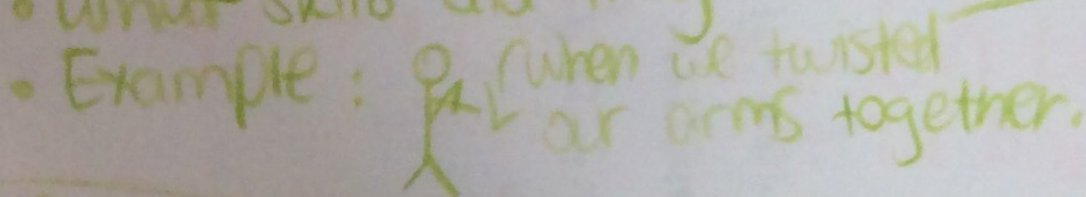 • What skills did
• Example : (when we twisted
our arms together.